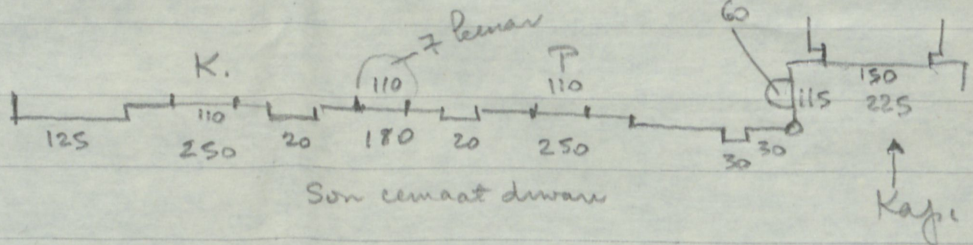 60
7 kenar
K. 110 P 110
150
110 115 225
125 250 20 180 20 250 30 30
Son cemaat duvarı
Kapı